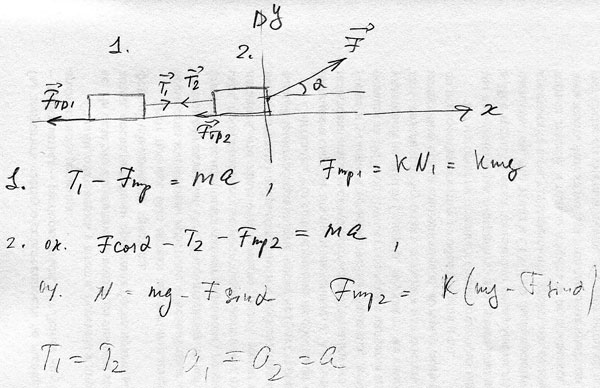 y
1. 2. F⃗
F⃗тр1 T⃗1 T⃗2 α
F⃗тр2 x
1. T₁ - Fтр = ma , Fтр1 = KN₁ = Kmg
2. ox. Fcosα - T₂ - Fтр2 = ma ,
oy. N = mg - Fsinα Fтр2 = K(mg - Fsinα)
T₁ = T₂ a₁ = a₂ = a